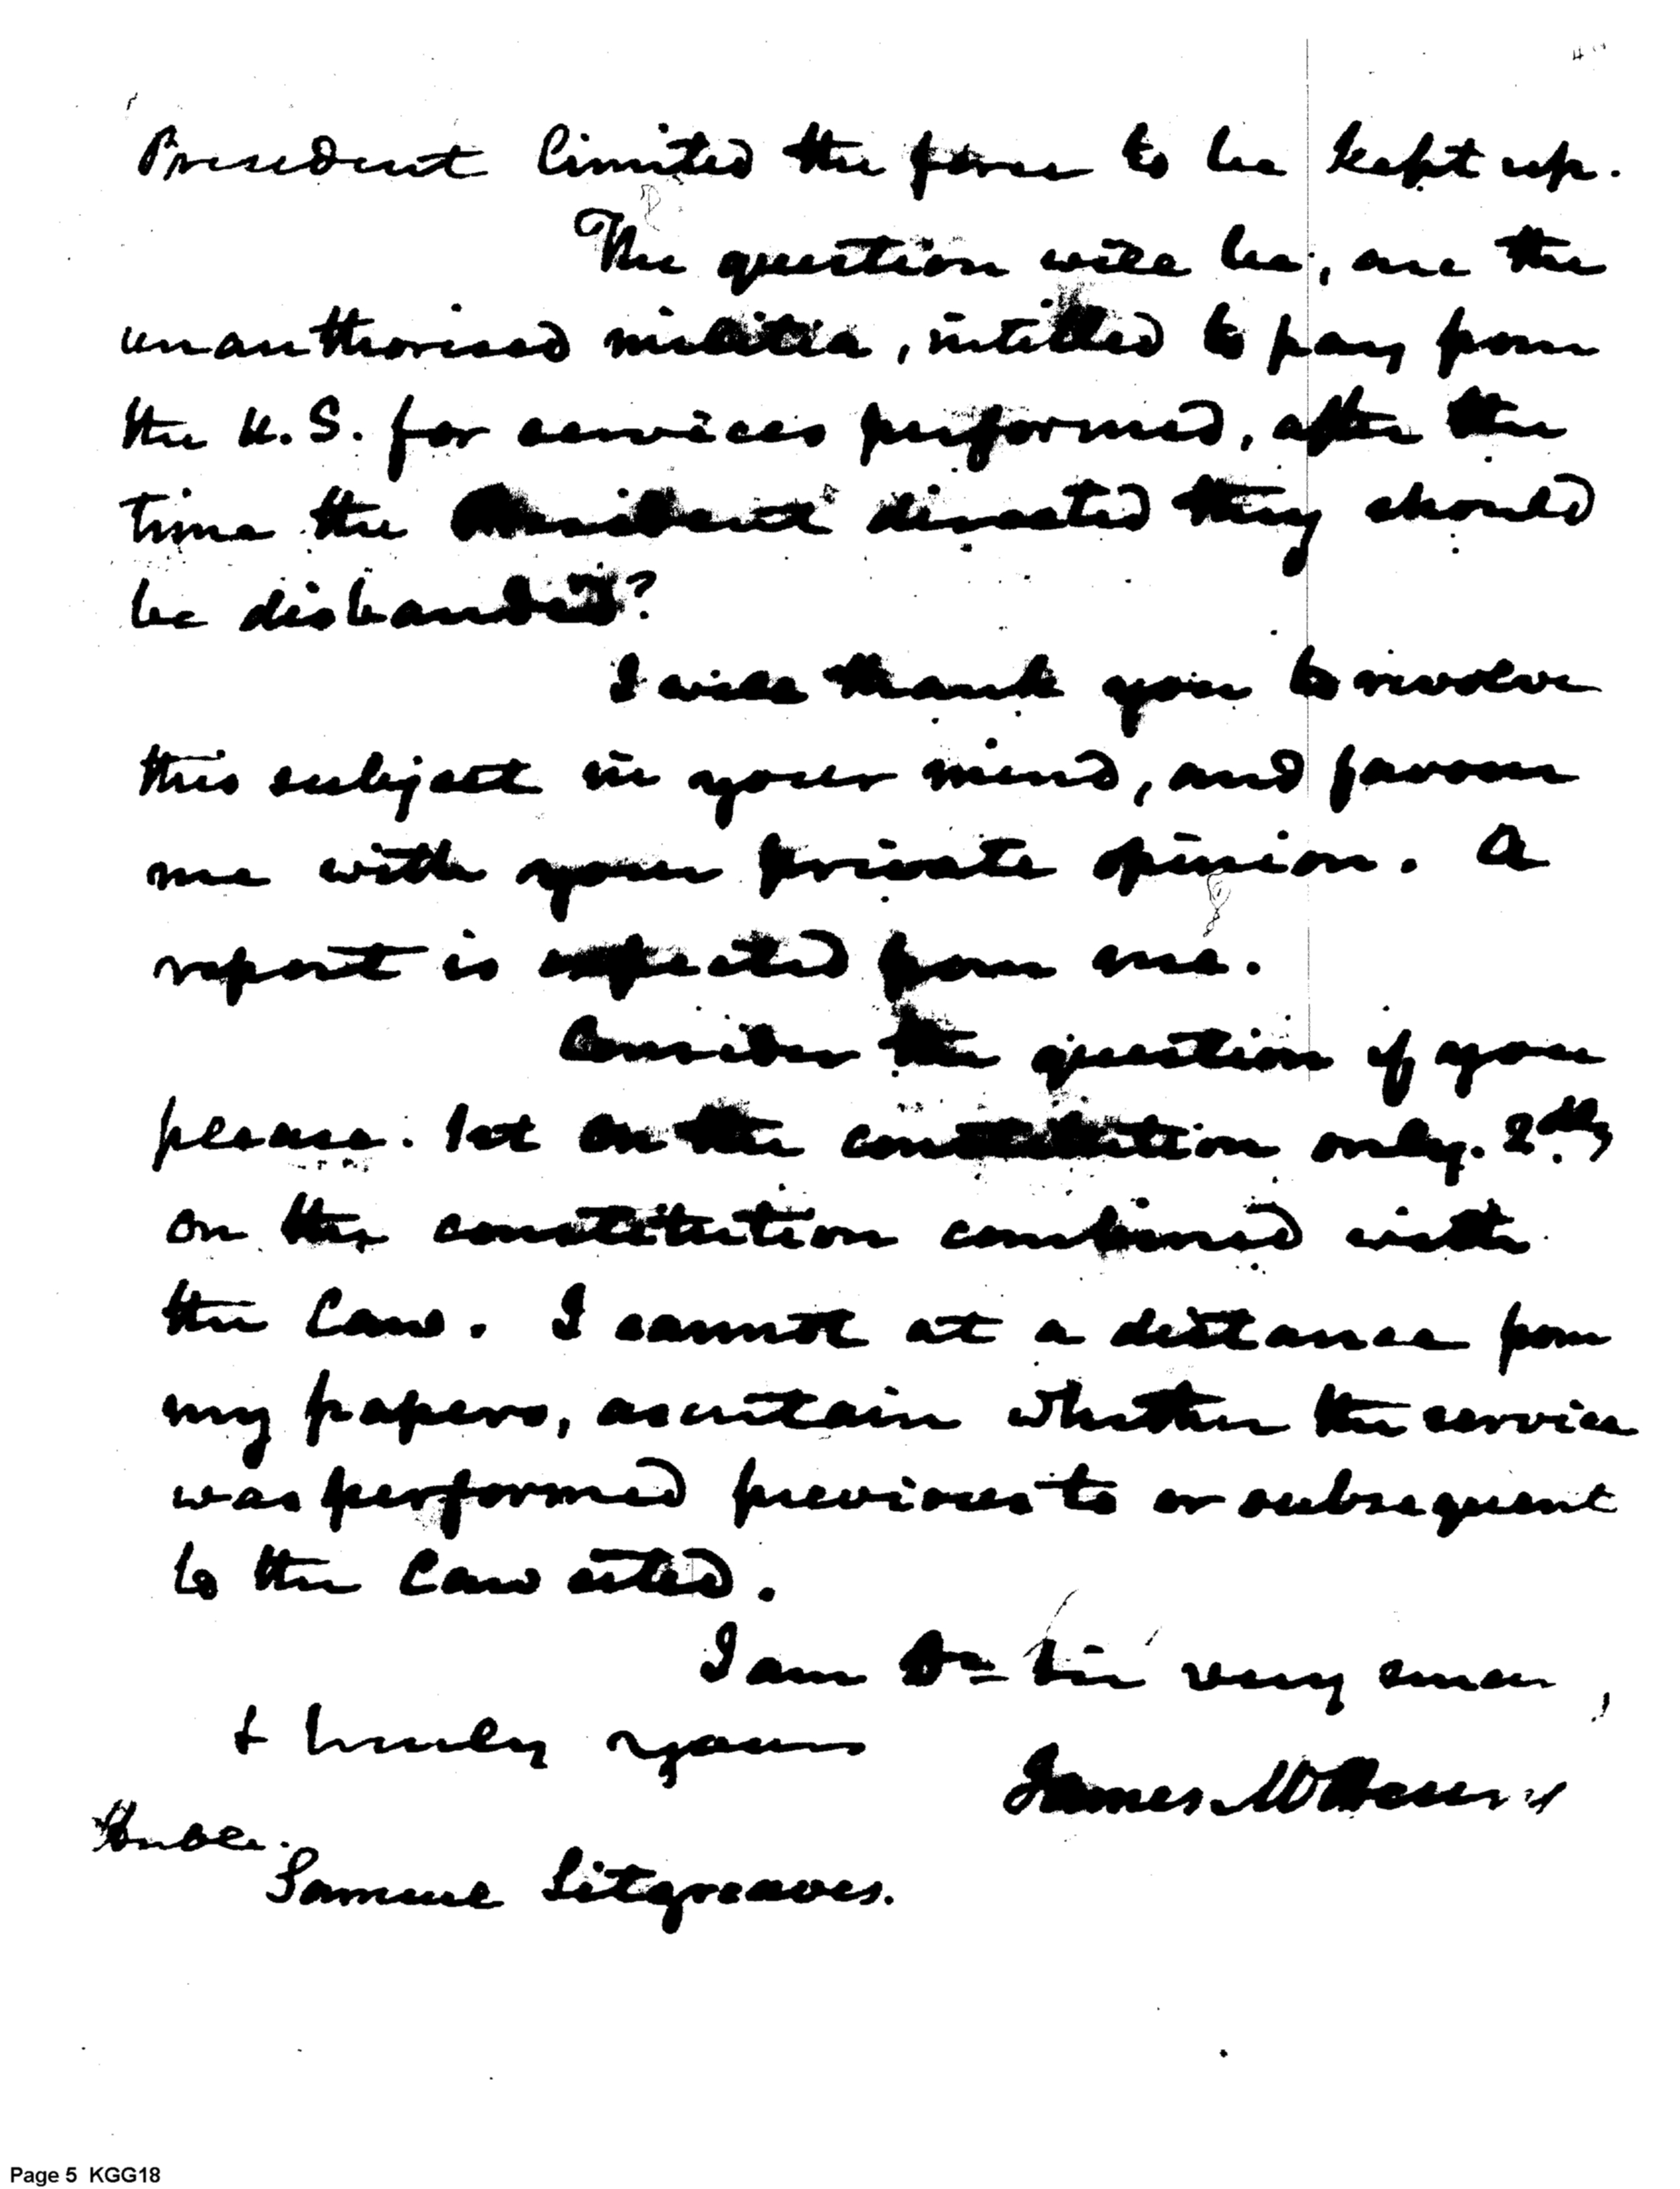 President limited the force to be kept up.
The question will be, are the
unauthorised militia, intitled to pay from
the U.S. for services performed, after the
time the President directed they should
be disbanded?
I will thank you to revolve
this subject in your mind, and favour
me with your private opinion. A
report is expected from me.
Consider the question if you
please. 1st on the constitution only. 2dly
on the constitution combined with
the law. I cannot at a distance from
my papers, ascertain whether the service
was performed previous to or subsequent
to the law cited.
I am Dr Sir very sincer
& truly yours
James McHenry
Honble.
Samuel Sitgreaves.
Page 5 KGG18